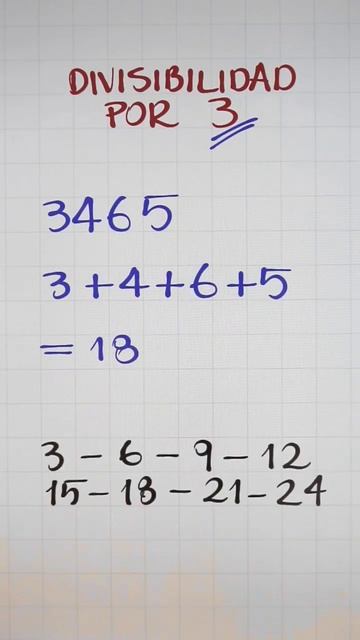 DIVISIBILIDAD
POR 3
3465
3+4+6+5
= 18
3 - 6 - 9 - 12
15 - 18 - 21 - 24